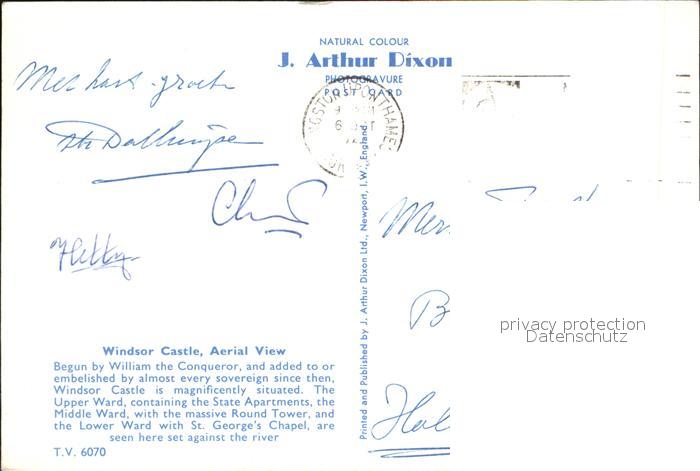 NATURAL COLOUR
J. Arthur Dixon
PHOTOGRAVURE
POST CARD
Met hart. groeten
Chris
Hetty
Mevr.
B
Hol
Printed and Published by J. Arthur Dixon Ltd., Newport, I.W., England.
privacy protection
Datenschutz
Windsor Castle, Aerial View
Begun by William the Conqueror, and added to or
embelished by almost every sovereign since then,
Windsor Castle is magnificently situated. The
Upper Ward, containing the State Apartments, the
Middle Ward, with the massive Round Tower, and
the Lower Ward with St. George's Chapel, are
seen here set against the river
T.V. 6070